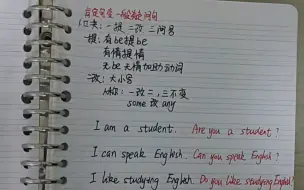 肯定句变一般疑问句
口诀：一提 二改 三问号
一提：有be提be
有情提情
无be无情加助动词
二改：大小写
人称：一改二，三不变
some改any
I am a student. Are you a student?
I can speak English. Can you speak English?
I like studying English. Do you like studying English?